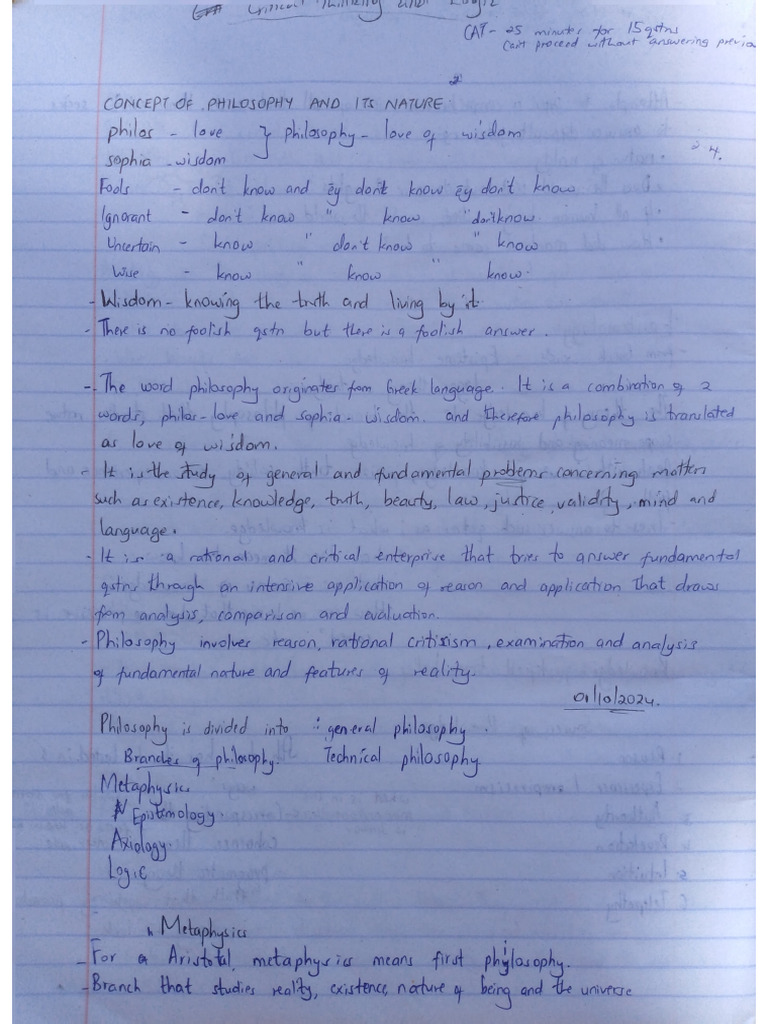 Critical Thinking and Logic
CAT - 25 minutes for 15 qstns
Can't proceed without answering previou
2
CONCEPT OF PHILOSOPHY AND ITS NATURE
philos - love } philosophy - love of wisdom
sophia - wisdom
4.
Fools - don't know and ēy don't know ēy don't know
Ignorant - don't know " know " don't know
Uncertain - know " don't know " know
Wise - know " know " know
- Wisdom - knowing the truth and living by it
- There is no foolish qstn but there is a foolish answer.
- The word philosophy originates from Greek language. It is a combination of 2
words, philos-love and sophia-wisdom. and therefore philosophy is translated
as love of wisdom.
- It is the study of general and fundamental problems concerning matters
such as existence, knowledge, truth, beauty, law, justice, validity, mind and
language.
- It is a rational and critical enterprise that tries to answer fundamental
qstns through an intensive application of reason and application that draws
from analysis, comparison and evaluation.
- Philosophy involves reason, rational critisism, examination and analysis
of fundamental nature and features of reality.
01/10/2024.
Philosophy is divided into : general philosophy.
Branches of philosophy. Technical philosophy
Metaphysics
Epistemology.
Axiology.
Logic
Metaphysics
- For a Aristotal, metaphysics means first phylosophy.
- Branch that studies reality, existence, nature of being and the universe